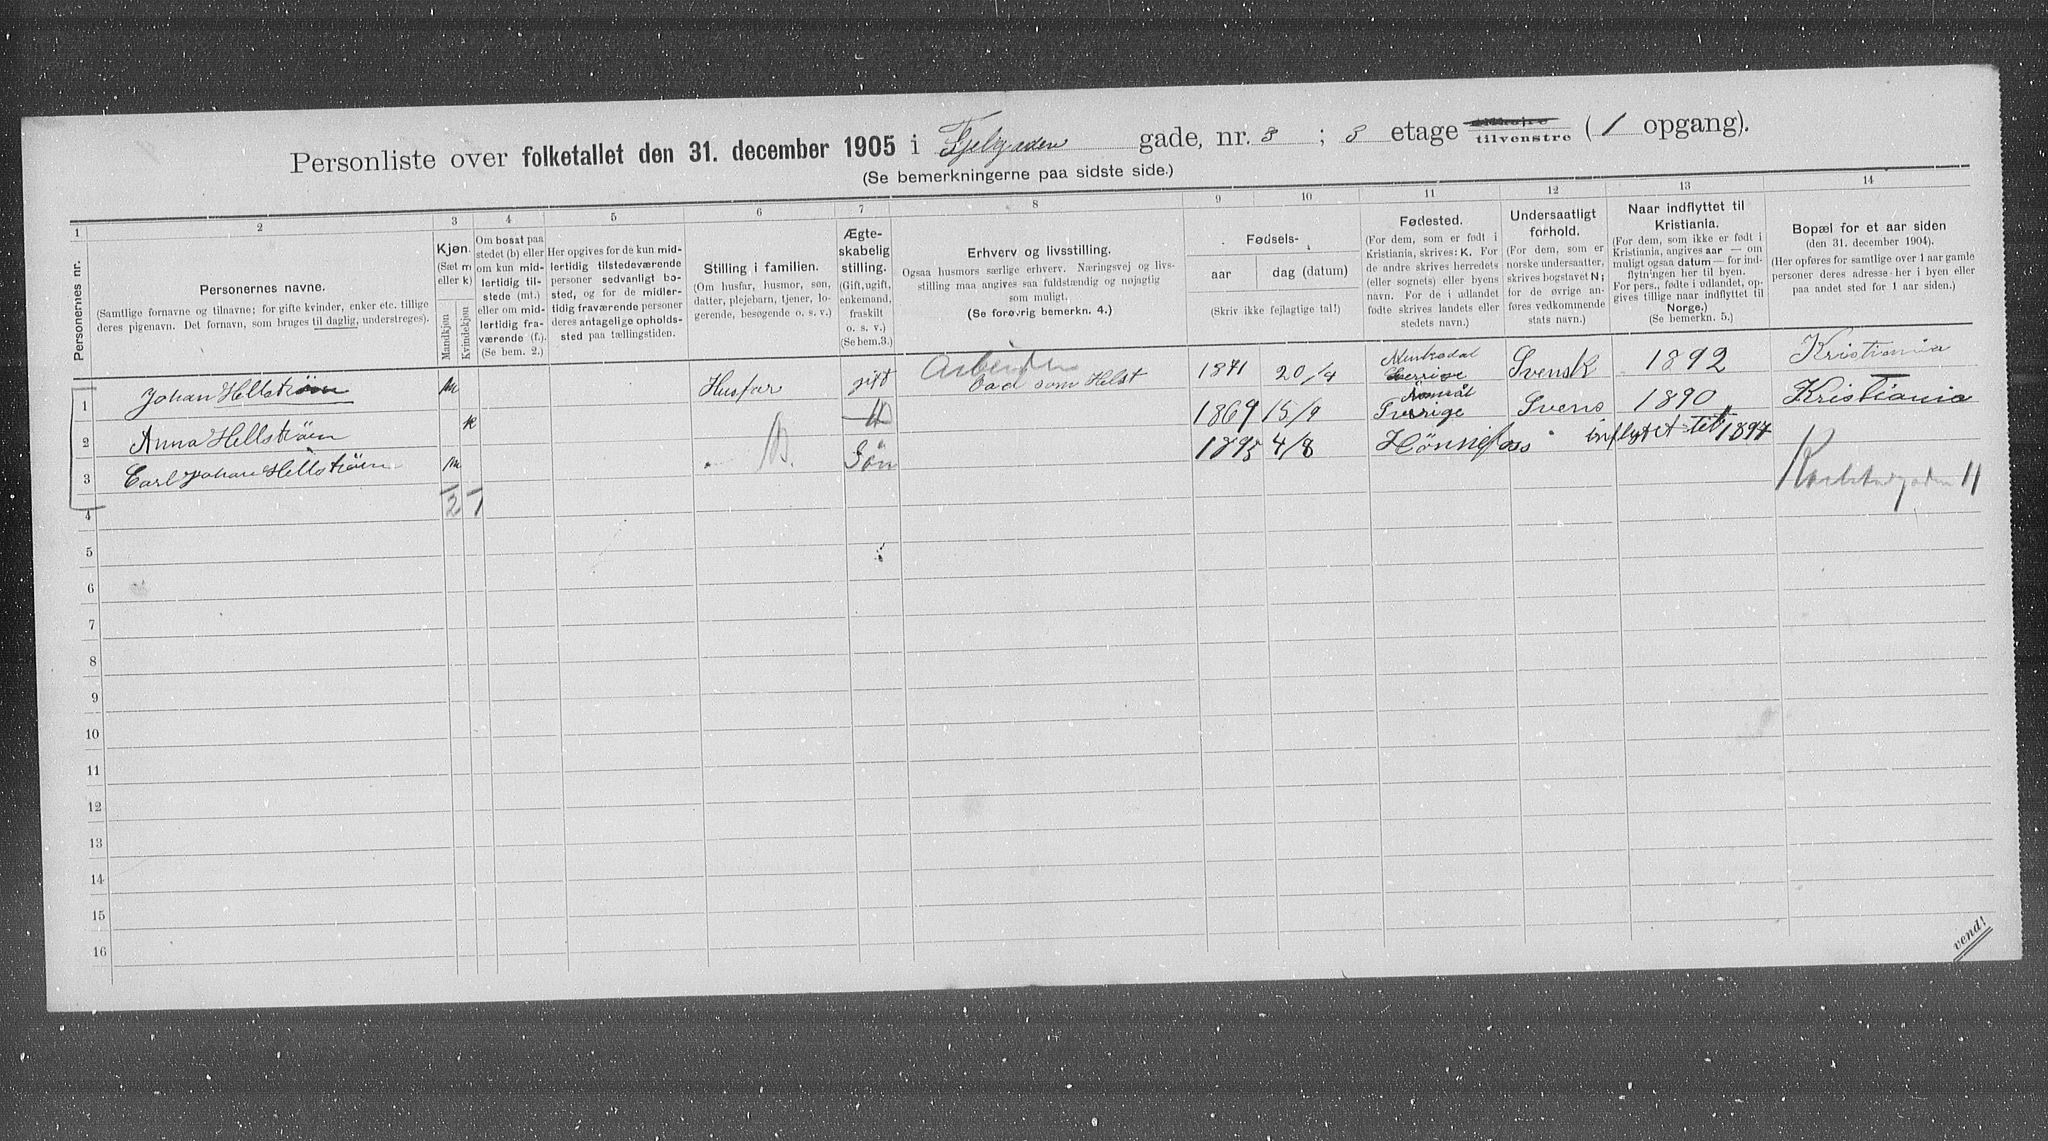 Personliste over folketallet den 31. december 1905 i Fjeldgaden gade, nr. 3 ; 3 etage tilhøire tilvenstre (1 opgang).
(Se bemerkningerne paa sidste side.)
1 2 3 4 5 6 7 8 9 10 11 12 13 14
Personernes nr.
Personernes navne.
(Samtlige fornavne og tilnavne; for gifte kvinder, enker etc. tillige
deres pigenavn. Det fornavn, som bruges til daglig, understreges).
Kjøn.
(Sæt m
eller k)
Mandkjøn
Kvindekjøn
Om bosat paa
stedet (b) eller
om kun mid-
lertidig til-
stede (mt.)
eller om mid-
lertidig fra-
værende (f.).
(Se bem. 2.)
Her opgives for de kun mid-
lertidig tilstedeværende
personer sedvanligt bo-
sted, og for de midler-
tidig fraværende personer
deres antagelige opholds-
sted paa tællingstiden.
Stilling i familien.
(Om husfar, husmor, søn,
datter, plejebarn, tjener, lo-
gerende, besøgende o. s. v.)
Ægte-
skabelig
stilling.
(Gift, ugift,
enkemand,
fraskilt
o. s. v.)
(Se bem.3.)
Erhverv og livsstilling.
Ogsaa husmors særlige erhverv. Næringsvej og livs-
stilling maa angives saa fuldstændig og nøjagtig
som muligt.
(Se forøvrig bemerkn. 4.)
Fødsels-
aar
dag (datum)
(Skriv ikke fejlagtige tal!)
Fødested.
(For dem, som er født i
Kristiania, skrives: K. For
de andre skrives herredets
(eller sognets) eller byens
navn. For de i udlandet
fødte skrives landets eller
stedets navn.)
Undersaatligt
forhold.
(For dem, som er
norske undersaatter,
skrives bogstavet N;
for de øvrige an-
føres vedkommende
stats navn.)
Naar indflyttet til
Kristiania.
(For dem, som ikke er født i
Kristiania, angives aar — om
muligt ogsaa datum — for ind-
flytningen her til byen.
For pers., fødte i udlandet, op-
gives tillige naar indflyttet til
Norge.)
(Se bemerkn. 5.)
Bopæl for et aar siden
(den 31. december 1904).
(Her opføres for samtlige over 1 aar gamle
personer deres adresse - her i byen eller
paa andet sted for 1 aar siden.)
1 Johan Hellstrøm m Husfar gift Arbeider 1871 20/4 Sverrige Svensk 1892 Kristiania
2 Anna Hellstrøm k 1869 15/9 Sverrige Svens 1890 Kristiania
3 Carl Johan Hellstrøm m B. Søn 1895 4/8 Hønnefoss inflytet til 1897
4 2 1
5
6
7
8
9
10
11
12
13
14
15
16
vend!